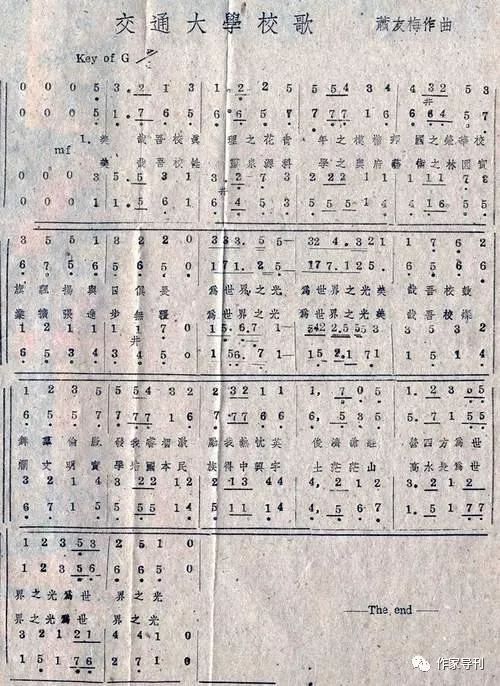 交通大學校歌 蕭友梅作曲
Key of G
0 0 0 5 3. 2 1 3 1. 2 2 5 5 5 4 3 4 4 3 2 5 3
0 0 0 5 1. 7 6 5 6 6 5 7 7 7 7 1 6 6 6 4 5 7
mf 1. 美 哉吾校真 理之花青 年之模楷邦 國之榮華校
美 哉吾校 泉源科 學之奧府藝 術之林園實
0 0 0 3 3. 5 3 1 3. 2 7 3 2 2 2 1 1 1 1 1 7
0 0 0 1 1. 5 6 1 6 4 5 3 5 5 5 1 4 4 1 6 5 5
3 5 5 1 3 2 2 0 3 3 3. 5 5— 32 4. 3 2 1 1 7 6 2
6 7 5 6 5 6 5 0 1 7 1. 2 5— 17 7. 1 2 5. 6 5 6 6
旗飄揚與日俱長 為世界之光 為世界之光美 哉吾校鼓
業擴張進步無疆 為世界之光 為世界之光美 哉吾校燦
1 2 1 1 1 1 7 0 1 5. 6. 7 1— 5 4 2 2. 5 5 3 3 5 3 2
6 5 3 4 3 4 5 0 1 5 6. 7 1— 1 5 2. 1 7 1 6 5 1 4
1 2 3 5 5 5 4 3 2 2 3 2 1 1 1, 7 0 5 1. 2 3 6 5
6 5 5 7 7 7 7 1 6 7 7 7 6 6 6, 5 3 5 5. 7 1 5 5
舞羣倫啟 發我睿智激 勵我熱忱英 俊濟 四方為世
爛文明實 學培國本民 族得中興宇 土茫茫山 高水長為世
3 2 1 4 3 2 2 1 2 2 1 3 4 4 4, 2 1 2 3. 5 1 2 2
6 7 1 5 5 5 5 1 4 5 1 1 1 4 4, 5 6 7 1. 5 1 7 7
1 2 3 5 3 2 5 1 0
1 2 3 5 6 6 6 5 0
界之光為世 界之光
界之光為世 界之光
3 2 1 2 1 4 4 1 0
1 5 1 7 6 2 7 1 0
—The end—
作家导刊